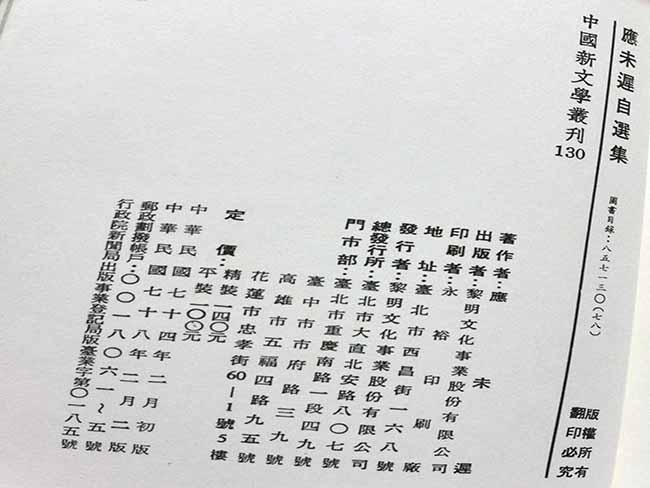 應未遲自選集
中國新文學叢刊130
圖書目錄：八五七一三〇（七八）
版權所有
翻印必究
著作者：應未遲
出版者：黎明文化事業股份有限公司
印刷者：永裕印刷廠
地址：臺北市西昌街一六八號
發行者：黎明文化事業股份有限公司
總發行所：臺北市大直北安路八〇七號
門市部：臺北市重慶南路一段四九號
臺中市市府路三九號
高雄市五福四路九五號
花蓮市忠孝街60—1號5樓
定價：精裝一四〇元
平裝一〇〇元
中華民國七十四年二月初版
中華民國七十八年二月二版
郵政劃撥帳戶：〇〇一八〇六一～五號
行政院新聞局出版事業登記局版臺業字第〇一八五號